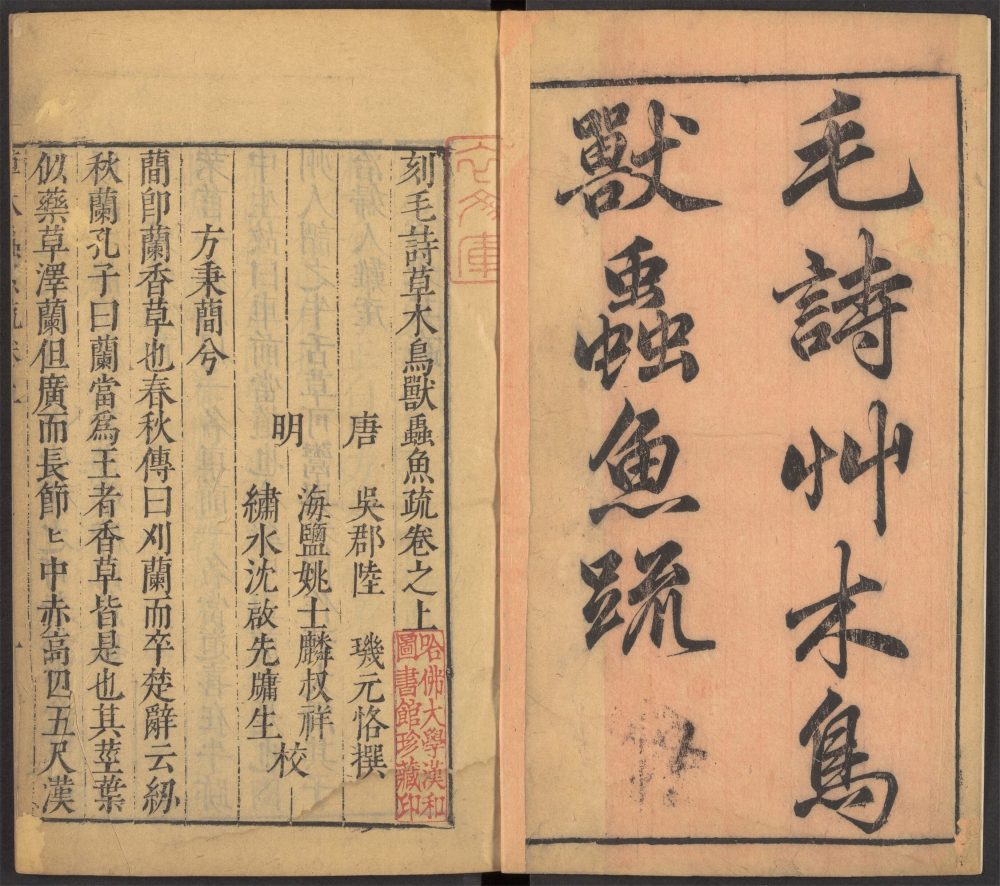 毛詩艸木鳥
獸蟲魚疏
刻毛詩草木鳥獸蟲魚疏卷之上
唐 吳郡陸 璣元恪撰
明 海鹽姚士麟叔祥
繡水沈啟先牖生 校
方秉蕑兮
蕑卽蘭香草也春秋傳曰刈蘭而卒楚辭云紉
秋蘭孔子曰蘭當爲王者香草皆是也其莖葉
似藥草澤蘭但廣而長節〻中赤高四五尺漢
哈佛大學漢和
圖書館珍藏印